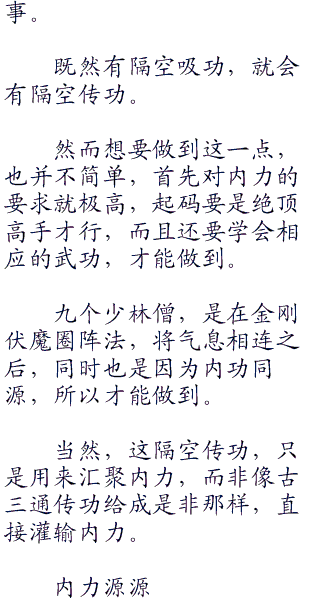 事。
既然有隔空吸功，就会
有隔空传功。
然而想要做到这一点，
也并不简单，首先对内力的
要求就极高，起码要是绝顶
高手才行，而且还要学会相
应的武功，才能做到。
九个少林僧，是在金刚
伏魔圈阵法，将气息相连之
后，同时也是因为内功同
源，所以才能做到。
当然，这隔空传功，只
是用来汇聚内力，而非像古
三通传功给成是非那样，直
接灌输内力。
内力源源